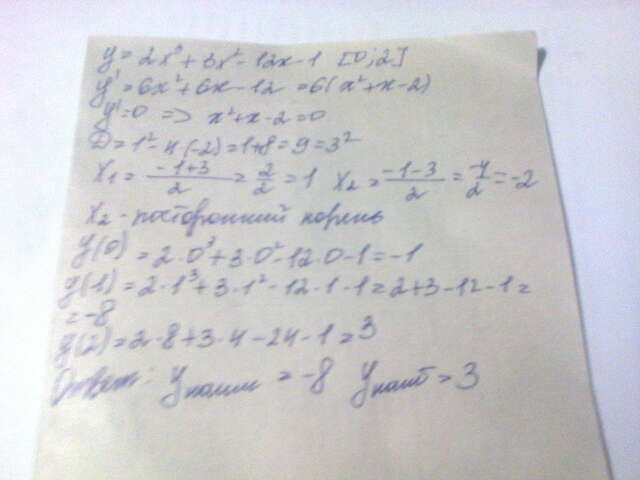 y = 2x³ + 3x² - 12x - 1 [0; 2]
y' = 6x² + 6x - 12 = 6(x² + x - 2)
y' = 0 => x² + x - 2 = 0
D = 1² - 4(-2) = 1+8 = 9 = 3²
x₁ = (-1+3)/2 = 2/2 = 1 x₂ = (-1-3)/2 = -4/2 = -2
x₂ - посторонний корень
y(0) = 2·0³ + 3·0² - 12·0 - 1 = -1
y(1) = 2·1³ + 3·1² - 12·1 - 1 = 2+3-12-1 =
= -8
y(2) = 2·8 + 3·4 - 24 - 1 = 3
Ответ: y наим = -8 y наиб = 3